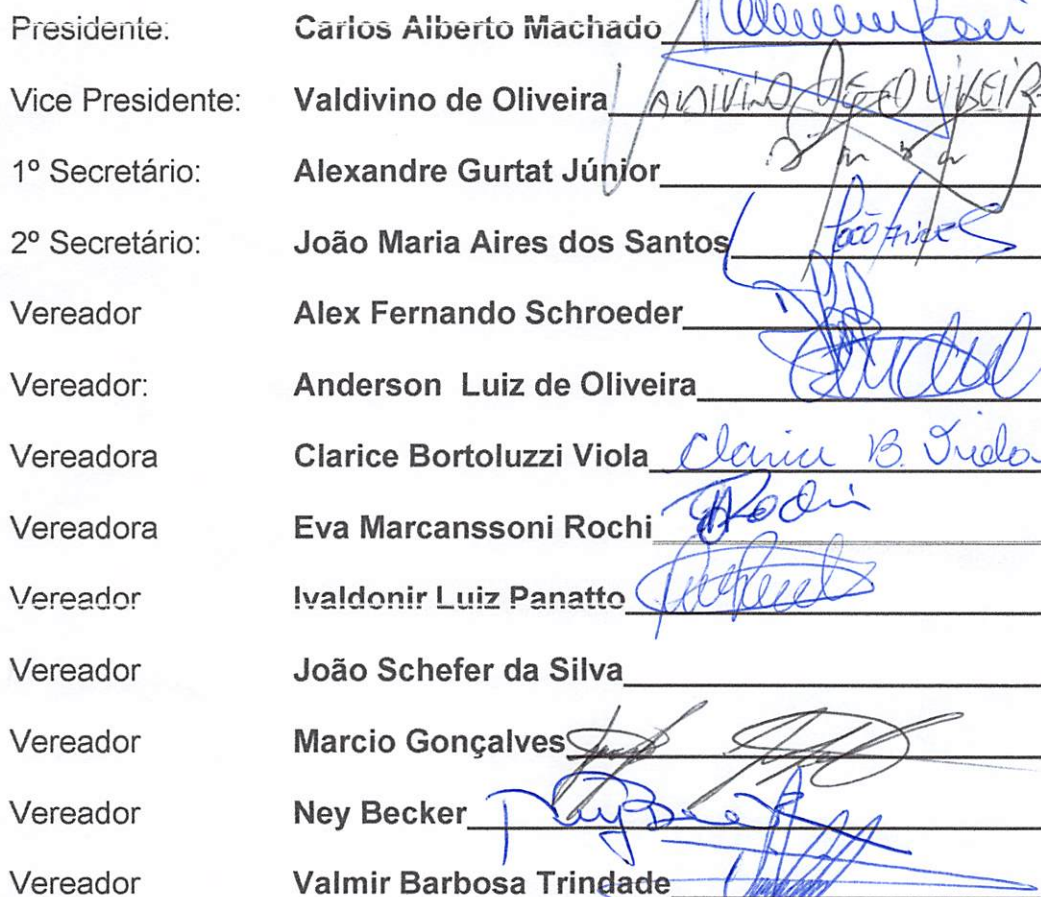 Presidente: Carlos Alberto Machado
Vice Presidente: Valdivino de Oliveira VALDIVINO DE OLIVEIRA
1º Secretário: Alexandre Gurtat Júnior
2º Secretário: João Maria Aires dos Santos João Aires
Vereador Alex Fernando Schroeder
Vereador: Anderson Luiz de Oliveira
Vereadora Clarice Bortoluzzi Viola Clarice B. Viola
Vereadora Eva Marcanssoni Rochi ERochi
Vereador Ivaldonir Luiz Panatto
Vereador João Schefer da Silva
Vereador Marcio Gonçalves
Vereador Ney Becker Ney Becker
Vereador Valmir Barbosa Trindade